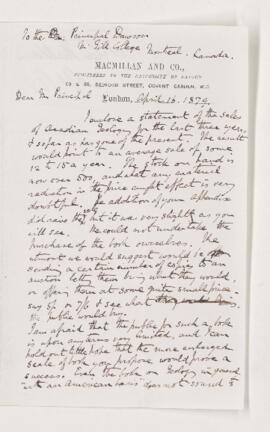 To the Principal Dawson
McGill College Montreal. Canada.
MACMILLAN AND CO.,
PUBLISHERS TO THE UNIVERSITY OF OXFORD
29 & 30, BEDFORD STREET, COVENT GARDEN, W.C.
Dear Mr Principal London, April 16. 1879.
I enclose a statement of the sales
of Acadian Geology for the last three years,
& so far as has gone of the present. The result
would point to an average sale of some
12 to 15 a year. The stock on hand is
now over 500, and what any material
reduction in the price might effect is very
doubtful. The addition of your appendix
did raise but it was very slightly as you
will see. We could not undertake the
purchase of the book ourselves. The
utmost we would suggest would be
sending a certain number of copies to an
auction letting them bring what they would,
or offering them at some quite small price
say 5/- or 7/6 & see what
the public would buy.
I am afraid that the public for such a book
is upon any terms very limited, and I can
hold out little hope that the more enlarged
scale of book you propose would prove a
success. Even the book on Geology in general
with an American basis does not sound to